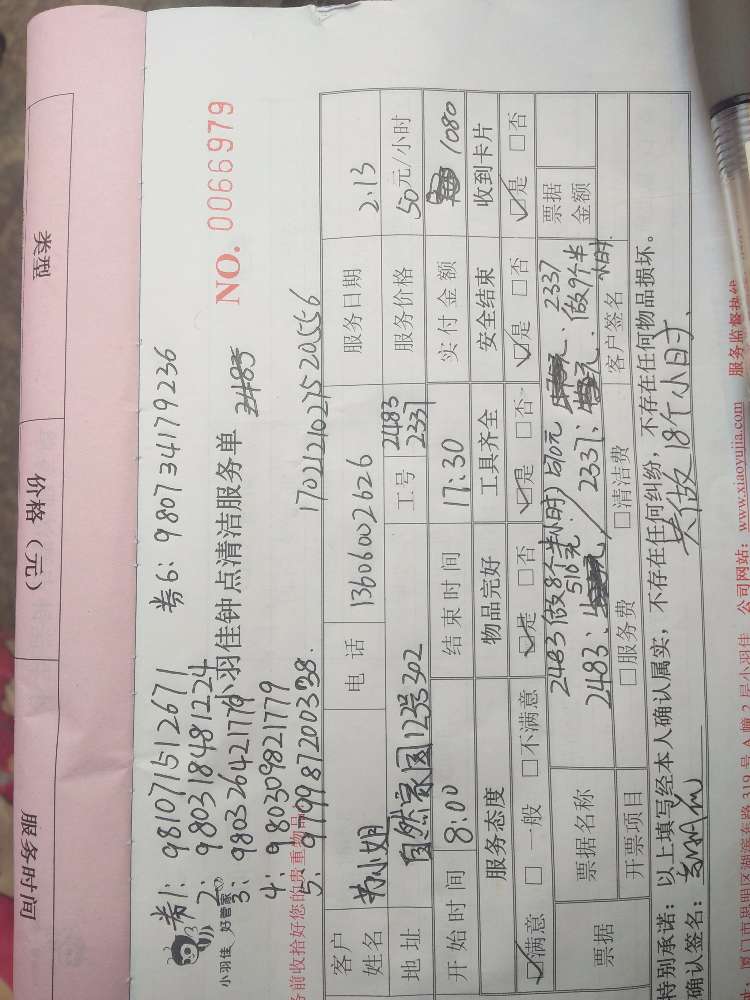 类型
价格（元）
服务时间
券1：9810715512671 券6：980734179236
2：980318481224
3：980326421779
4：980309821779
5：9709987200338
小羽佳 好管家
小羽佳钟点清洁服务单
NO. 0066979
170212102752055 6
务前收拾好您的贵重物品
客户姓名 电话 13606002626 服务日期 2.13
地址 自然家园123号302 工号 2483 2337 服务价格 50元/小时
开始时间 8:00 结束时间 17:30 实付金额 1080
服务态度 物品完好 工具齐全 安全结束 收到卡片
☑满意 □一般 □不满意 ☑是 □否 ☑是 □否 ☑是 □否 ☑是 □否
票据 票据名称 票据金额
2483做8个半小时 510元 2337
2483、 2337、 做9个半小时
开票项目 □服务费 □清洁费 客户签名
特别承诺：以上填写经本人确认属实，不存在任何纠纷，不存在任何物品损坏。
确认签名： 共做18个小时
厦门市思明区湖滨 路319号A幢2层小羽佳 公司网站：www.xiaoyujia.com 服务监督热线